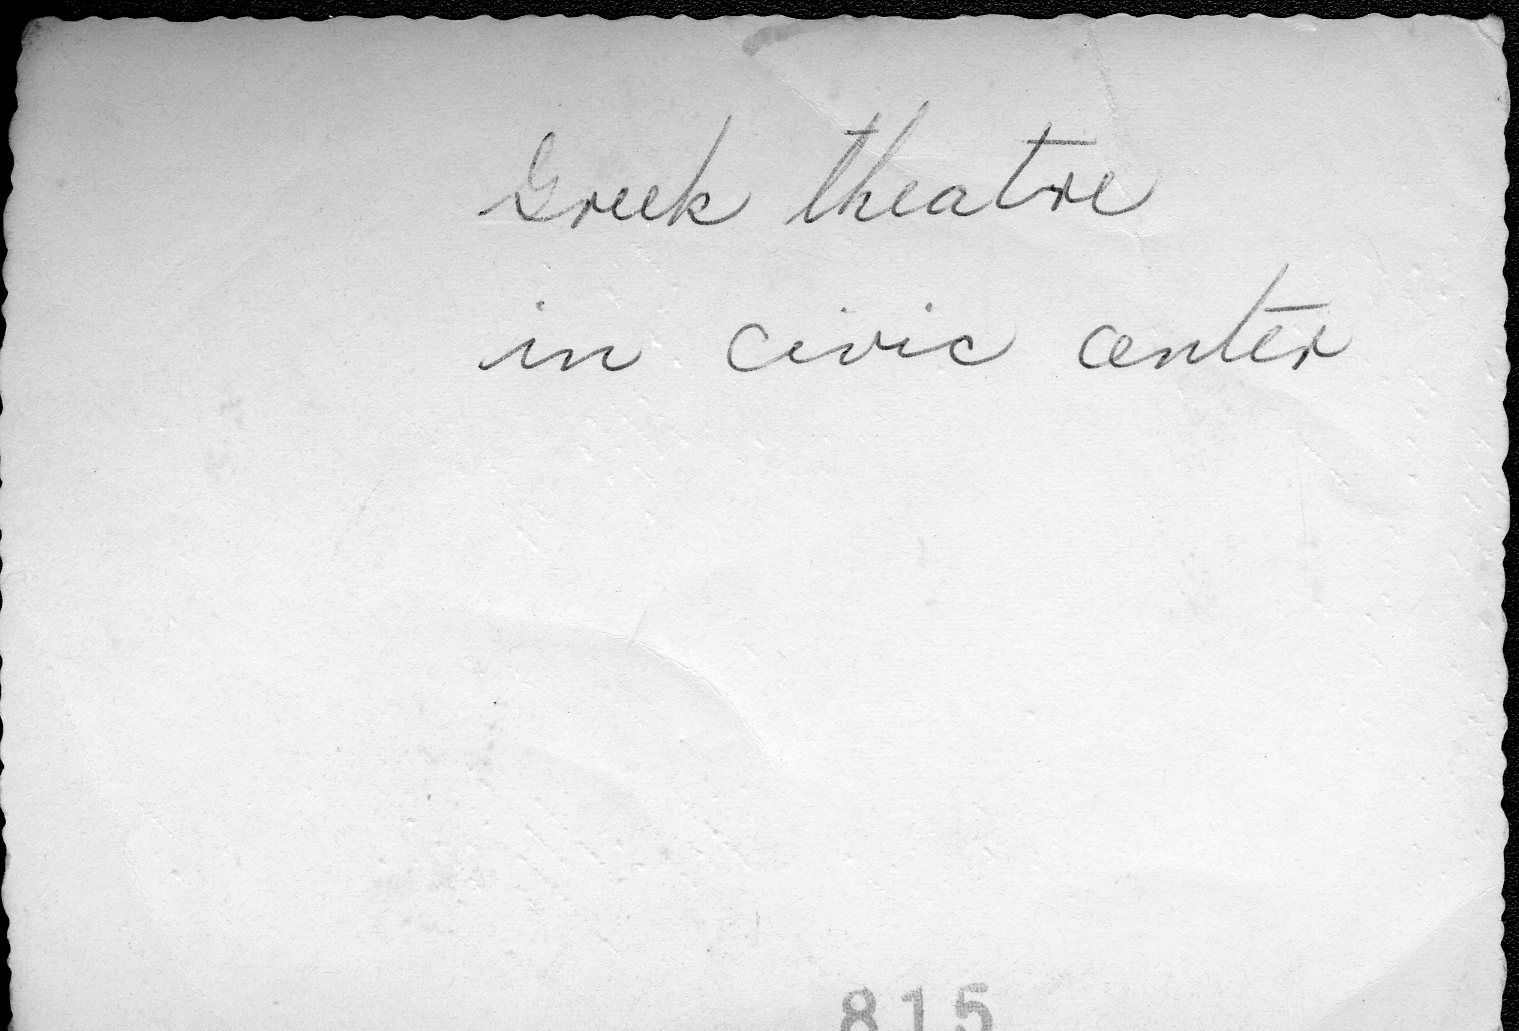 Greek theatre
in civic center
815